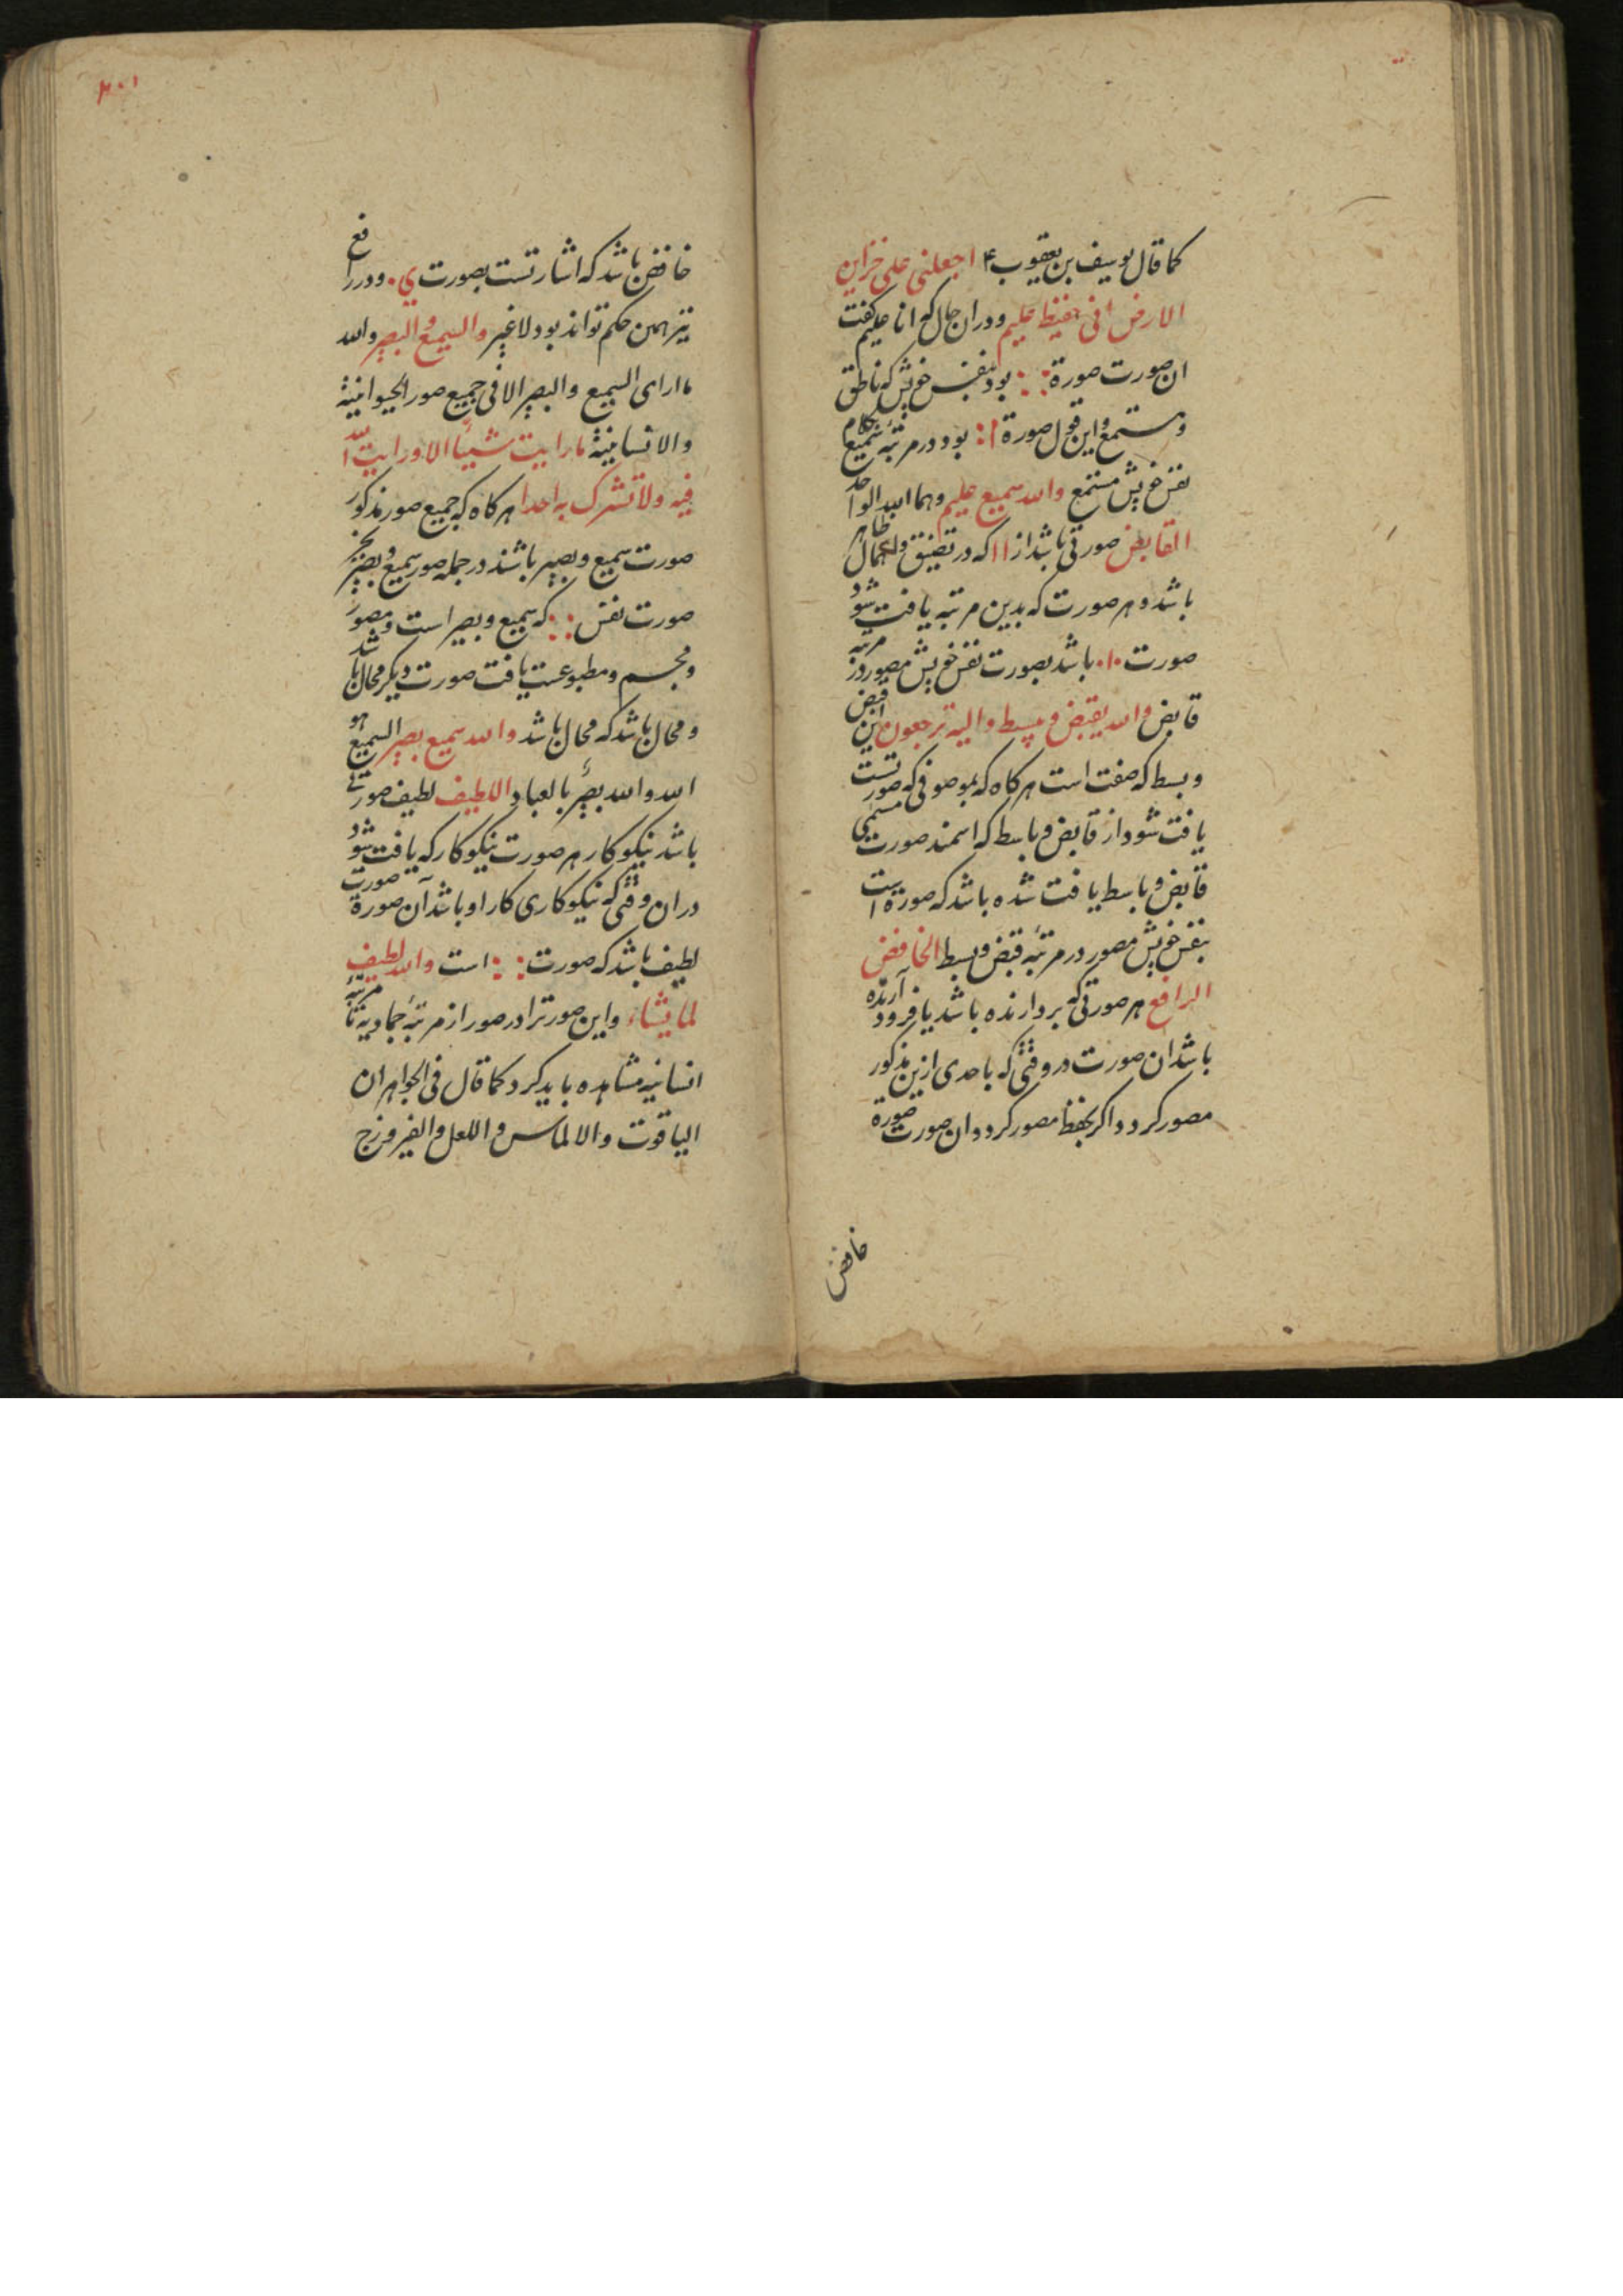 کما قال یوسف بن یعقوب ۴ اجعلنی علی خزاین
الارض انی حفیظ علیم ودران حال که انا علیم گفت
ان صورت صورة :: بود بنفس خویش که ناطق
ومستمع واین قول صورة ا: بود در مرتبه سمیع
نفس خویش مستمع والله سمیع علیم وهما الله الواحد
القابض صورتی باشد از اا که در تضییق واعمال ظاهر
باشد وهر صورت که بدین مرتبه یافت شود
صورت .ا. باشد بصورت نفس خویش مصور در مرتبه
قابض والله یقبض ویبسط والیه ترجعون این قبض
وبسط که صفت است هرکاه که بموصوفی که صورتست
یافت شود از قابض وباسط که اسمند صورت مسمی
قابض وباسط یافت شده باشد که صورة است
بنفس خویش مصور در مرتبه قبض وبسط الخافض
الرافع هر صورتی که بردارنده باشد یا فرود آرنده
باشد ان صورت در وقتی که باحدی ازین مذکور
مصور کردد اکر بخفض مصور کردد ان صورت صورة
خافض
۳۰۱
خافض باشد که اشارتست بصورت ی. ودر رافع
نیز همین حکم تواند بود لاغیر والسمیع والبصیر والله
ما ارای السمیع والبصیر الا فی جمیع صور الحیوانیة
والانسانیة ما رایت شیئا الا ورایت الله
فیه ولا تشرک به احدا هرکاه که جمیع صور مذکور
صورت سمیع وبصیر باشند در جمله صور سمیع وبصیر بجز
صورت نفس :: که سمیع وبصیر است ومصور
ومجسم ومطبوعست یافت صورت دیکر محال باشد
ومحال باشد که محال باشد والله سمیع بصیر السمیع هو
الله والله بصیر بالعباد اللطیف لطیف صورتی
باشد نیکوکار هر صورت نیکوکار که یافت شود
دران وقتی که نیکوکاری کار او باشد آن صورت صورة
لطیف باشد که صورت :: است والله لطیف
لما یشاء واین صورترا در صور از مرتبه جمادیه تا مرتبه
انسانیه مشاهده باید کرد کما قال فی الجواهر ان
الیاقوت والالماس واللعل والفیروزج